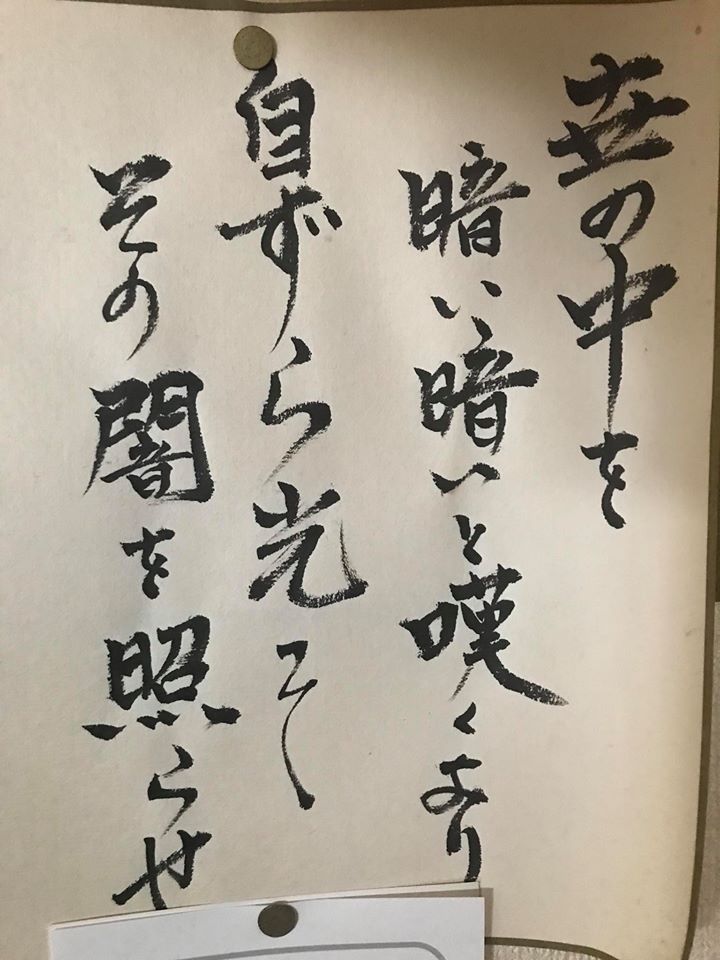 世の中を
暗い暗いと嘆くより
自ずら光
その闇を照らせ